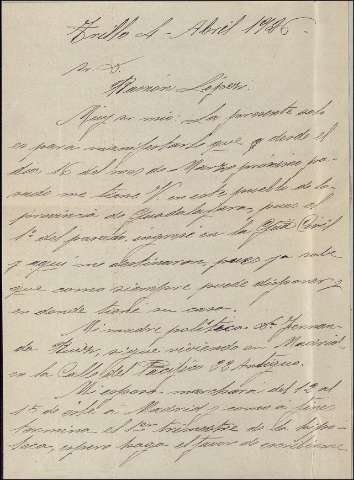 Trillo 4 - Abril 1926.
Sr. D.
Ramón López.
Muy sr mío: La presente solo
es para manifestarle que desde el
día 16 del mes de Marzo próximo pa-
sado me tiene V. en este pueblo de la
provincia de Guadalajara, pues el
1º del pasado, ingresé en la Gdia Civil
y aquí me destinaron, pues ya sabe
que como siempre puede disponer y
en donde tiene su casa.
Mi madre política Dª Fernan-
da sigue viviendo en Madrid
en la Calle del 22 Antiguo.
Mi esposa marchará del 12 al
15 de éste a Madrid y como a fines
termina el 1er trimestre de la hipo-
teca, espero haga el favor de escribirme